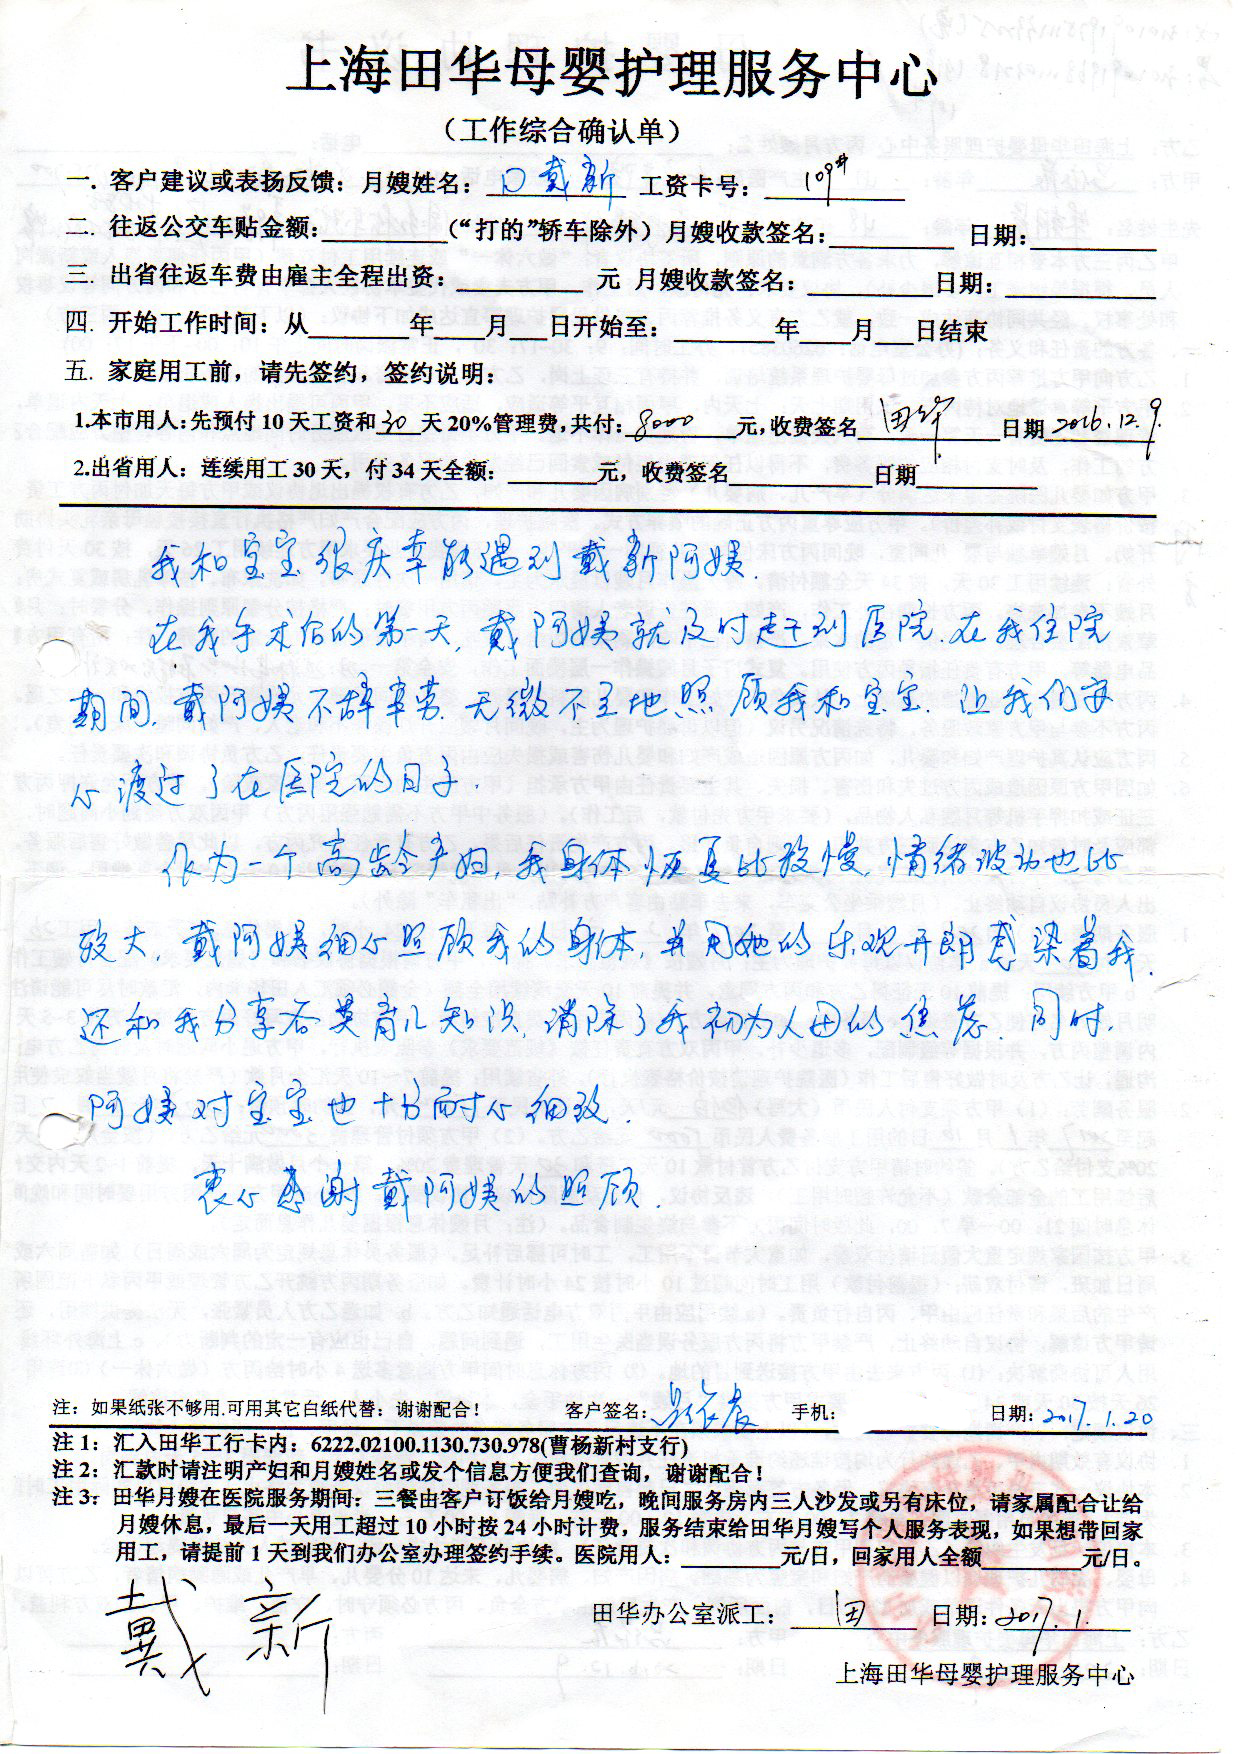 上海田华母婴护理服务中心
（工作综合确认单）
一. 客户建议或表扬反馈：月嫂姓名：戴新 工资卡号：109#
二. 往返公交车贴金额：________（“打的”轿车除外）月嫂收款签名：________ 日期：________
三. 出省往返车费由雇主全程出资：________ 元 月嫂收款签名：________日期：________
四. 开始工作时间：从______年____月___日开始至：______年____月___日结束
五. 家庭用工前，请先签约，签约说明：
1.本市用人：先预付 10 天工资和 30 天 20%管理费，共付：8000 元，收费签名 田华 日期 2016.12.9.
2.出省用人：连续用工 30 天，付 34 天全额：______元，收费签名________日期________
我和宝宝很庆幸能遇到戴新阿姨.
在我手术后的第一天，戴阿姨就及时赶到医院.在我住院
期间，戴阿姨不辞辛劳.无微不至地照顾我和宝宝.让我们安
心渡过了在医院的日子.
作为一个高龄产妇，我身体恢复比较慢，情绪波动也比
较大，戴阿姨细心照顾我的身体，并用她的乐观开朗感染着我.
还和我分享各类育儿知识，消除了我初为人母的焦虑.同时，
阿姨对宝宝也十分耐心细致.
衷心感谢戴阿姨的照顾.
注：如果纸张不够用.可用其它白纸代替；谢谢配合！ 客户签名： 手机： 日期：2017.1.20
注 1：汇入田华工行卡内：6222.02100.1130.730.978(曹杨新村支行)
注 2：汇款时请注明产妇和月嫂姓名或发个信息方便我们查询，谢谢配合！
注 3：田华月嫂在医院服务期间：三餐由客户订饭给月嫂吃，晚间服务房内三人沙发或另有床位，请家属配合让给
月嫂休息，最后一天用工超过 10 小时按 24 小时计费，服务结束给田华月嫂写个人服务表现，如果想带回家
用工，请提前 1 天到我们办公室办理签约手续。医院用人：________元/日，回家用人全额________元/日。
戴新
田华办公室派工：田 日期：2017.1.
上海田华母婴护理服务中心